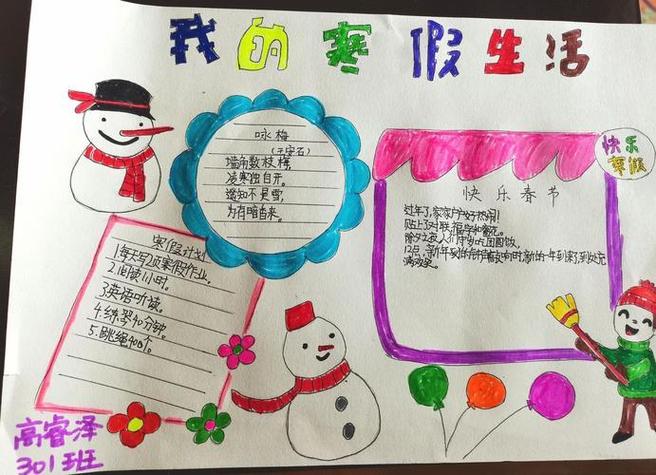 我的寒假生活
咏梅
(王安石)
墙角数枝梅,
凌寒独自开。
遥知不是雪,
为有暗香来。
快乐
寒假
快乐春节
过年了,家家户户好热闹!
贴上了对联、福字和窗花。
除夕之夜,人们
团圆饭。
12点,新年
满欢笑。
寒假计划
1.每天写2项寒假作业。
2.阅读1小时。
3.英语听读。
4.练琴40分钟。
5.跳绳400个。
高睿泽
301班